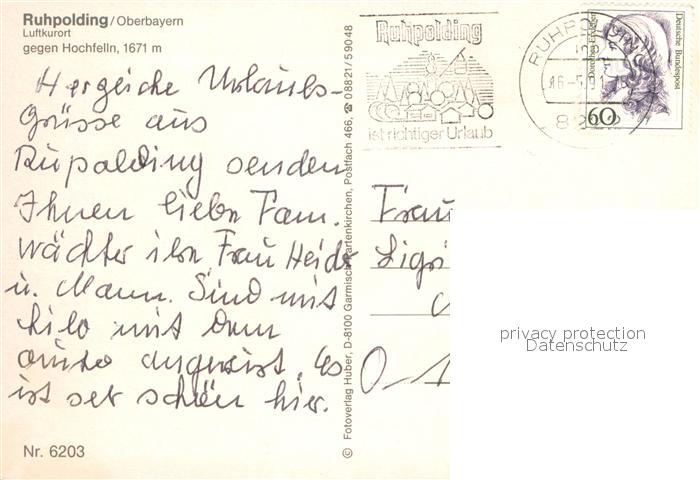 Ruhpolding/Oberbayern
Luftkurort
gegen Hochfelln, 1671 m
Hergliche Urlaubs-
Grüsse aus
Rupolding senden
Ihnen liebe Fam.
wächter ihre Frau Heide
u. Mann. Sind mit
hilo mit dem
auto angereist. Es
ist ser schön hier.
Nr. 6203
© Fotoverlag Huber, D-8100 Garmisch-Partenkirchen, Postfach 466, ☎ 08821/59048
Ruhpolding
ist richtiger Urlaub
RUHPOLDING
Deutsche Bundespost
60
Frau
privacy protection
Datenschutz